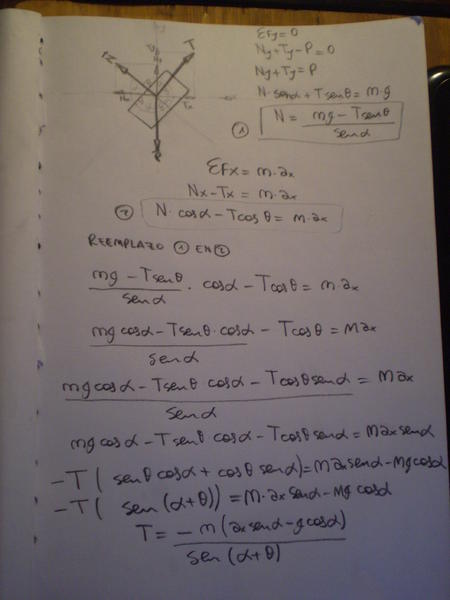 T
N
P
Tx
ΣFy=0
Ny+Ty-P=0
Ny+Ty=P
N·senα+Tsenθ=m·g
① N = mg-Tsenθ / senα
ΣFx = m·ax
Nx-Tx = m·ax
② N·cosα-Tcosθ=m·ax
REEMPLAZO ① EN ②
mg-Tsenθ / senα · cosα-Tcosθ=m·ax
mgcosα-Tsenθ·cosα / senα - Tcosθ=max
mgcosα-Tsenθ cosα-Tcosθsenα / senα = max
mgcosα-Tsenθ cosα-Tcosθsenα=maxsenα
-T( senθcosα+cosθsenα)=maxsenα-mgcosα
-T( sen(α+θ))=m·axsenα-mgcosα
T= -m(axsenα-gcosα) / sen(α+θ)